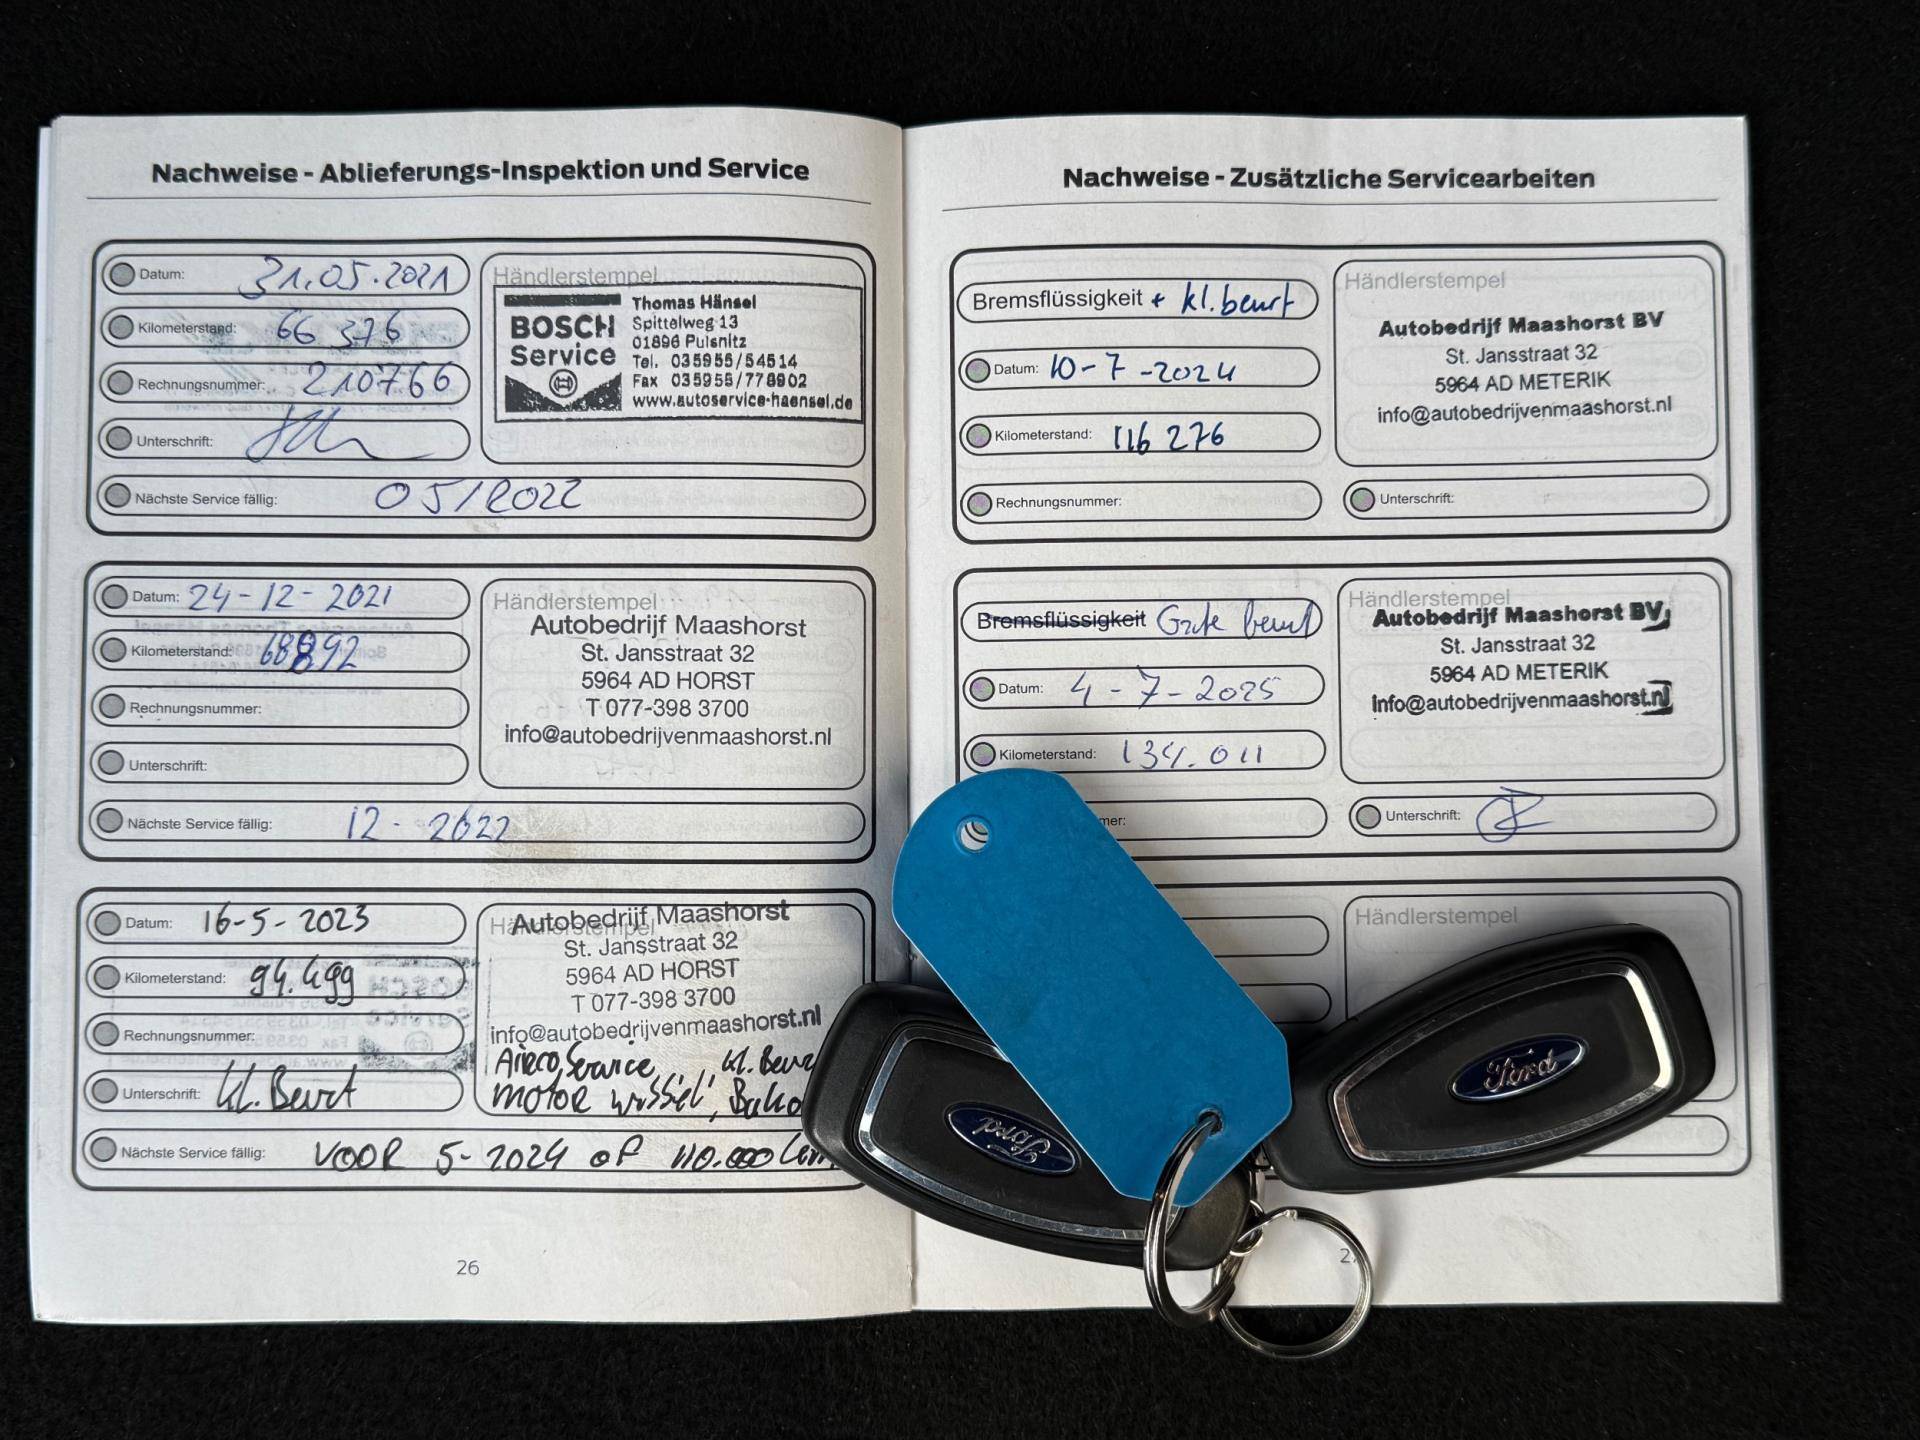 Nachweise - Ablieferungs-Inspektion und Service
Datum: 31.05.2021
Kilometerstand: 66 376
Rechnungsnummer: 210766
Unterschrift:
Nächste Service fällig: 05/2022
Händlerstempel
BOSCH
Service
Thomas Hänsel
Spittelweg 13
01896 Pulsnitz
Tel. 035955/54514
Fax 035955/778902
www.autoservice-haensel.de
Datum: 24-12-2021
Kilometerstand: 68892
Rechnungsnummer:
Unterschrift:
Nächste Service fällig: 12-2022
Händlerstempel
Autobedrijf Maashorst
St. Jansstraat 32
5964 AD HORST
T 077-398 3700
info@autobedrijvenmaashorst.nl
Datum: 16-5-2023
Kilometerstand: 94.499
Rechnungsnummer:
Unterschrift: kl. Beurt
Nächste Service fällig: VOOR 5-2024 of 110.000
Händlerstempel
Autobedrijf Maashorst
St. Jansstraat 32
5964 AD HORST
T 077-398 3700
info@autobedrijvenmaashorst.nl
Airco Service, kl. Beurt
motor
26
Nachweise - Zusätzliche Servicearbeiten
Bremsflüssigkeit + kl. beurt
Datum: 10-7-2024
Kilometerstand: 116 276
Rechnungsnummer:
Händlerstempel
Autobedrijf Maashorst BV
St. Jansstraat 32
5964 AD METERIK
info@autobedrijvenmaashorst.nl
Unterschrift:
Bremsflüssigkeit Grote beurt
Datum: 4-7-2025
Kilometerstand: 134.011
mer:
Händlerstempel
Autobedrijf Maashorst BV
St. Jansstraat 32
5964 AD METERIK
info@autobedrijvenmaashorst.nl
Unterschrift:
Händlerstempel
Ford
Ford